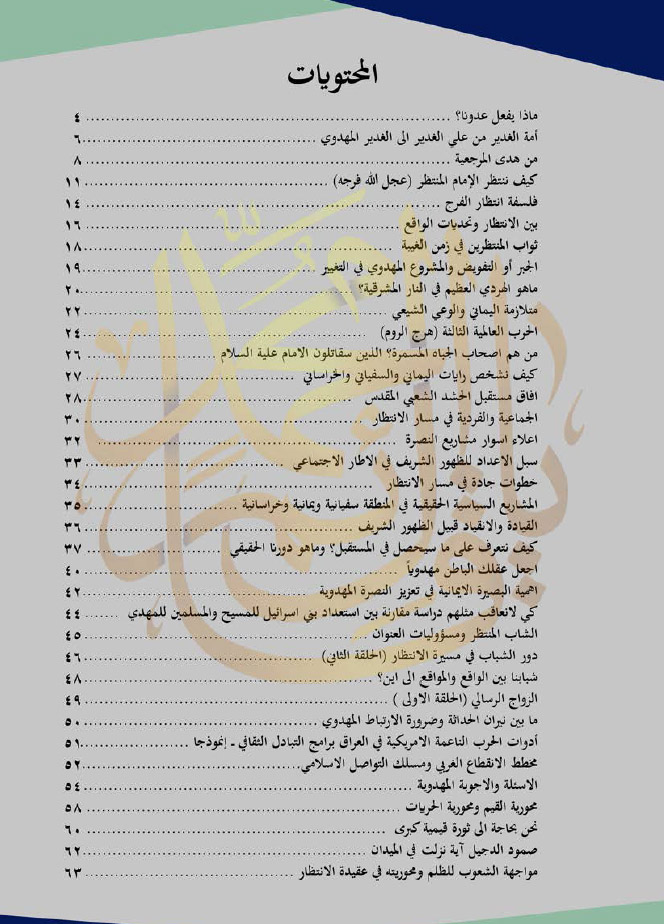 المحتويات
ماذا يفعل عدونا؟ ........ ٤
أمة الغدير من علي الغدير الى الغدير المهدوي ........ ٦
من هدى المرجعية ........ ٨
كيف ننتظر الإمام المنتظر (عجل الله فرجه) ........ ١١
فلسفة انتظار الفرج ........ ١٤
بين الانتظار وتحديات الواقع ........ ١٦
ثواب المنتظرين في زمن الغيبة ........ ١٨
الجبر أو التفويض والمشروع المهدوي في التغيير ........ ١٩
ماهو الهردي العظيم في النار المشرقية؟ ........ ٢٠
متلازمة اليماني والوعي الشيعي ........ ٢٢
الحرب العالمية الثالثة (هرج الروم) ........ ٢٤
من هم اصحاب الجباه المسمرة؟ الذين سقاتلون الامام علية السلام ........ ٢٦
كيف نشخص رايات اليماني والسفياني والخراساني ........ ٢٧
افاق مستقبل الحشد الشعبي المقدس ........ ٢٨
الجماعية والفردية في مسار الانتظار ........ ٣٠
اعلاء اسوار مشاريع النصرة ........ ٣٢
سبل الاعداد للظهور الشريف في الاطار الاجتماعي ........ ٣٣
خطوات جادة في مسار الانتظار ........ ٣٤
المشاريع السياسية الحقيقية في المنطقة سفيانية ويمانية وخراسانية ........ ٣٥
القيادة والانقياد قبيل الظهور الشريف ........ ٣٦
كيف نتعرف على ما سيحصل في المستقبل؟ وماهو دورنا الحقيقي ........ ٣٧
اجعل عقلك الباطن مهدوياً ........ ٤٠
اهمية البصيرة الايمانية في تعزيز النصرة المهدوية ........ ٤٢
كي لانعاقب مثلهم دراسة مقارنة بين استعداد بني اسرائيل للمسيح والمسلمين للمهدي ........ ٤٤
الشاب المنتظر ومسؤوليات العنوان ........ ٤٥
دور الشباب في مسيرة الانتظار (الحلقة الثاني) ........ ٤٦
شبابنا بين الواقع والمواقع الى اين؟ ........ ٤٨
الزواج الرسالي (الحلقة الاولى ) ........ ٤٩
ما بين نيران الحداثة وضرورة الارتباط المهدوي ........ ٥٠
أدوات الحرب الناعمة الامريكية في العراق برامج التبادل الثقافي ـ إنموذجا ........ ٥١
مخطط الانقطاع الغربي ومسلك التواصل الاسلامي ........ ٥٢
الاسئلة والاجوبة المهدوية ........ ٥٤
محورية القيم ومحورية الحريات ........ ٥٨
نحن بحاجة الى ثورة قيمية كبرى ........ ٦٠
صمود الدجيل آية نزلت في الميدان ........ ٦٢
مواجهة الشعوب للظلم ومحوريته في عقيدة الانتظار ........ ٦٣